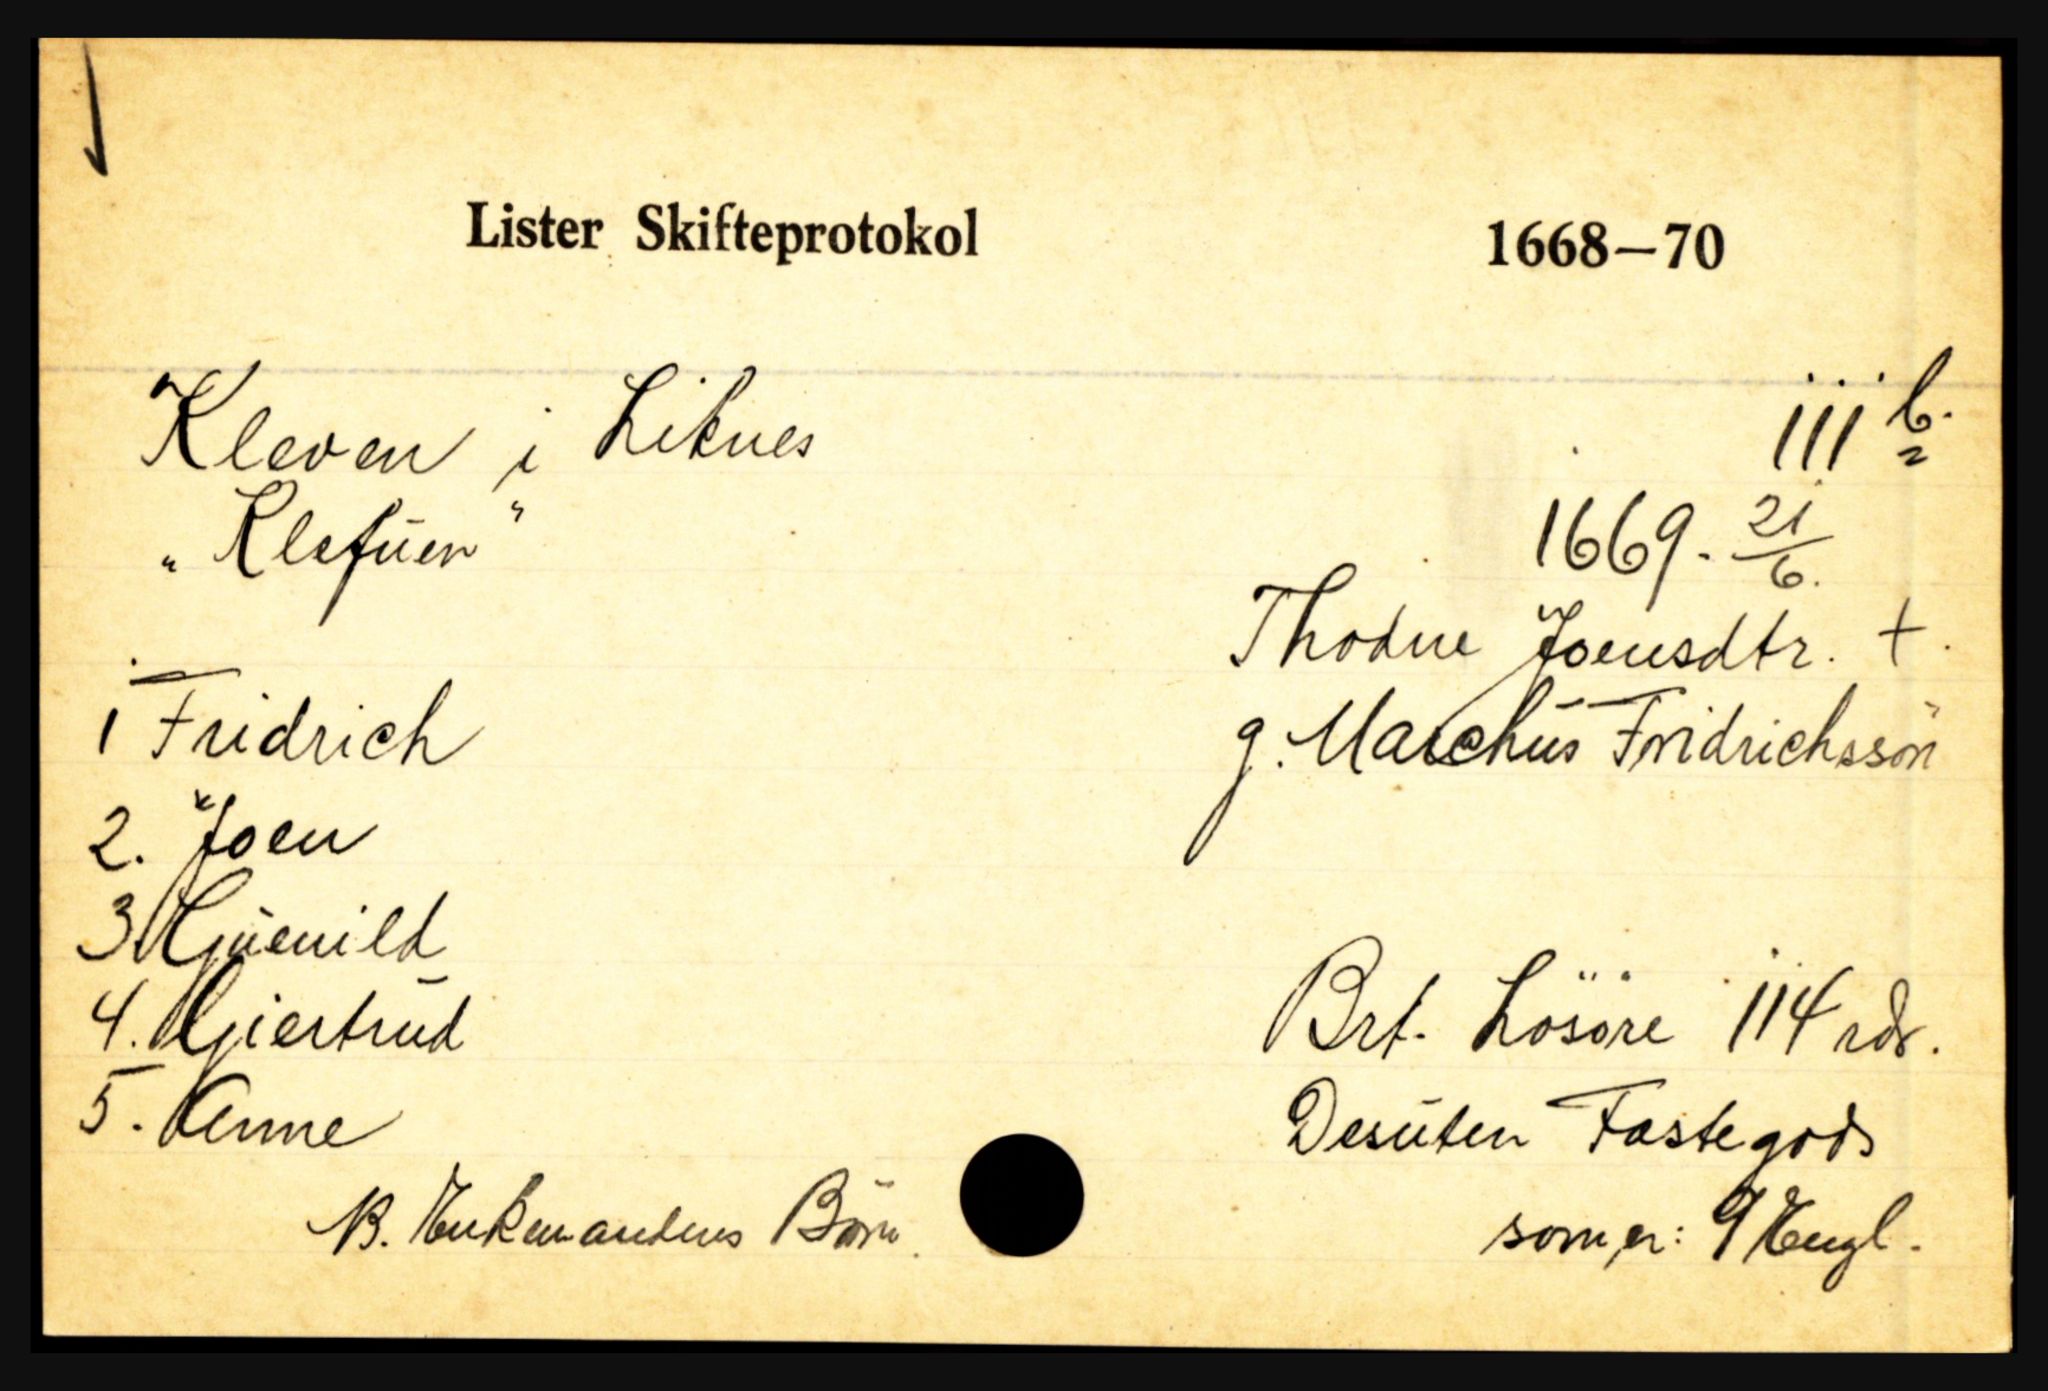 Lister Skifteprotokol 1668—70
Kleven i Liknes 111 b.
"Klefuen" 1669. 21/6.
Thodne Joensdtr. +.
1 Fridrich g. Marchus Fridrichssön
2. Joen
3. Guenild
4. Giertrud Brt. Lösöre 114 rdr.
5. Anne Desuten Fastegods
NB. Enkemandens Börn. som er: 9 Engl.